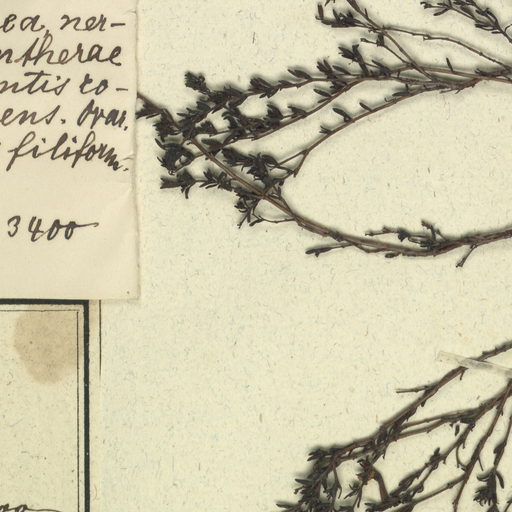 ea, ner-
ntherae
ntis co-
ens. Ovar.
filiform.
3400